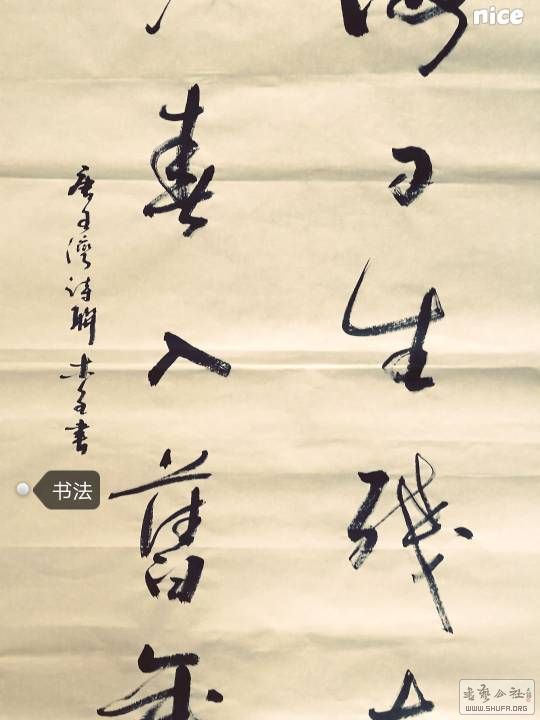 海日生残夜
江春入舊年
唐王湾诗联 书
书法
nice
书艺公社
WWW.SHUFA.ORG